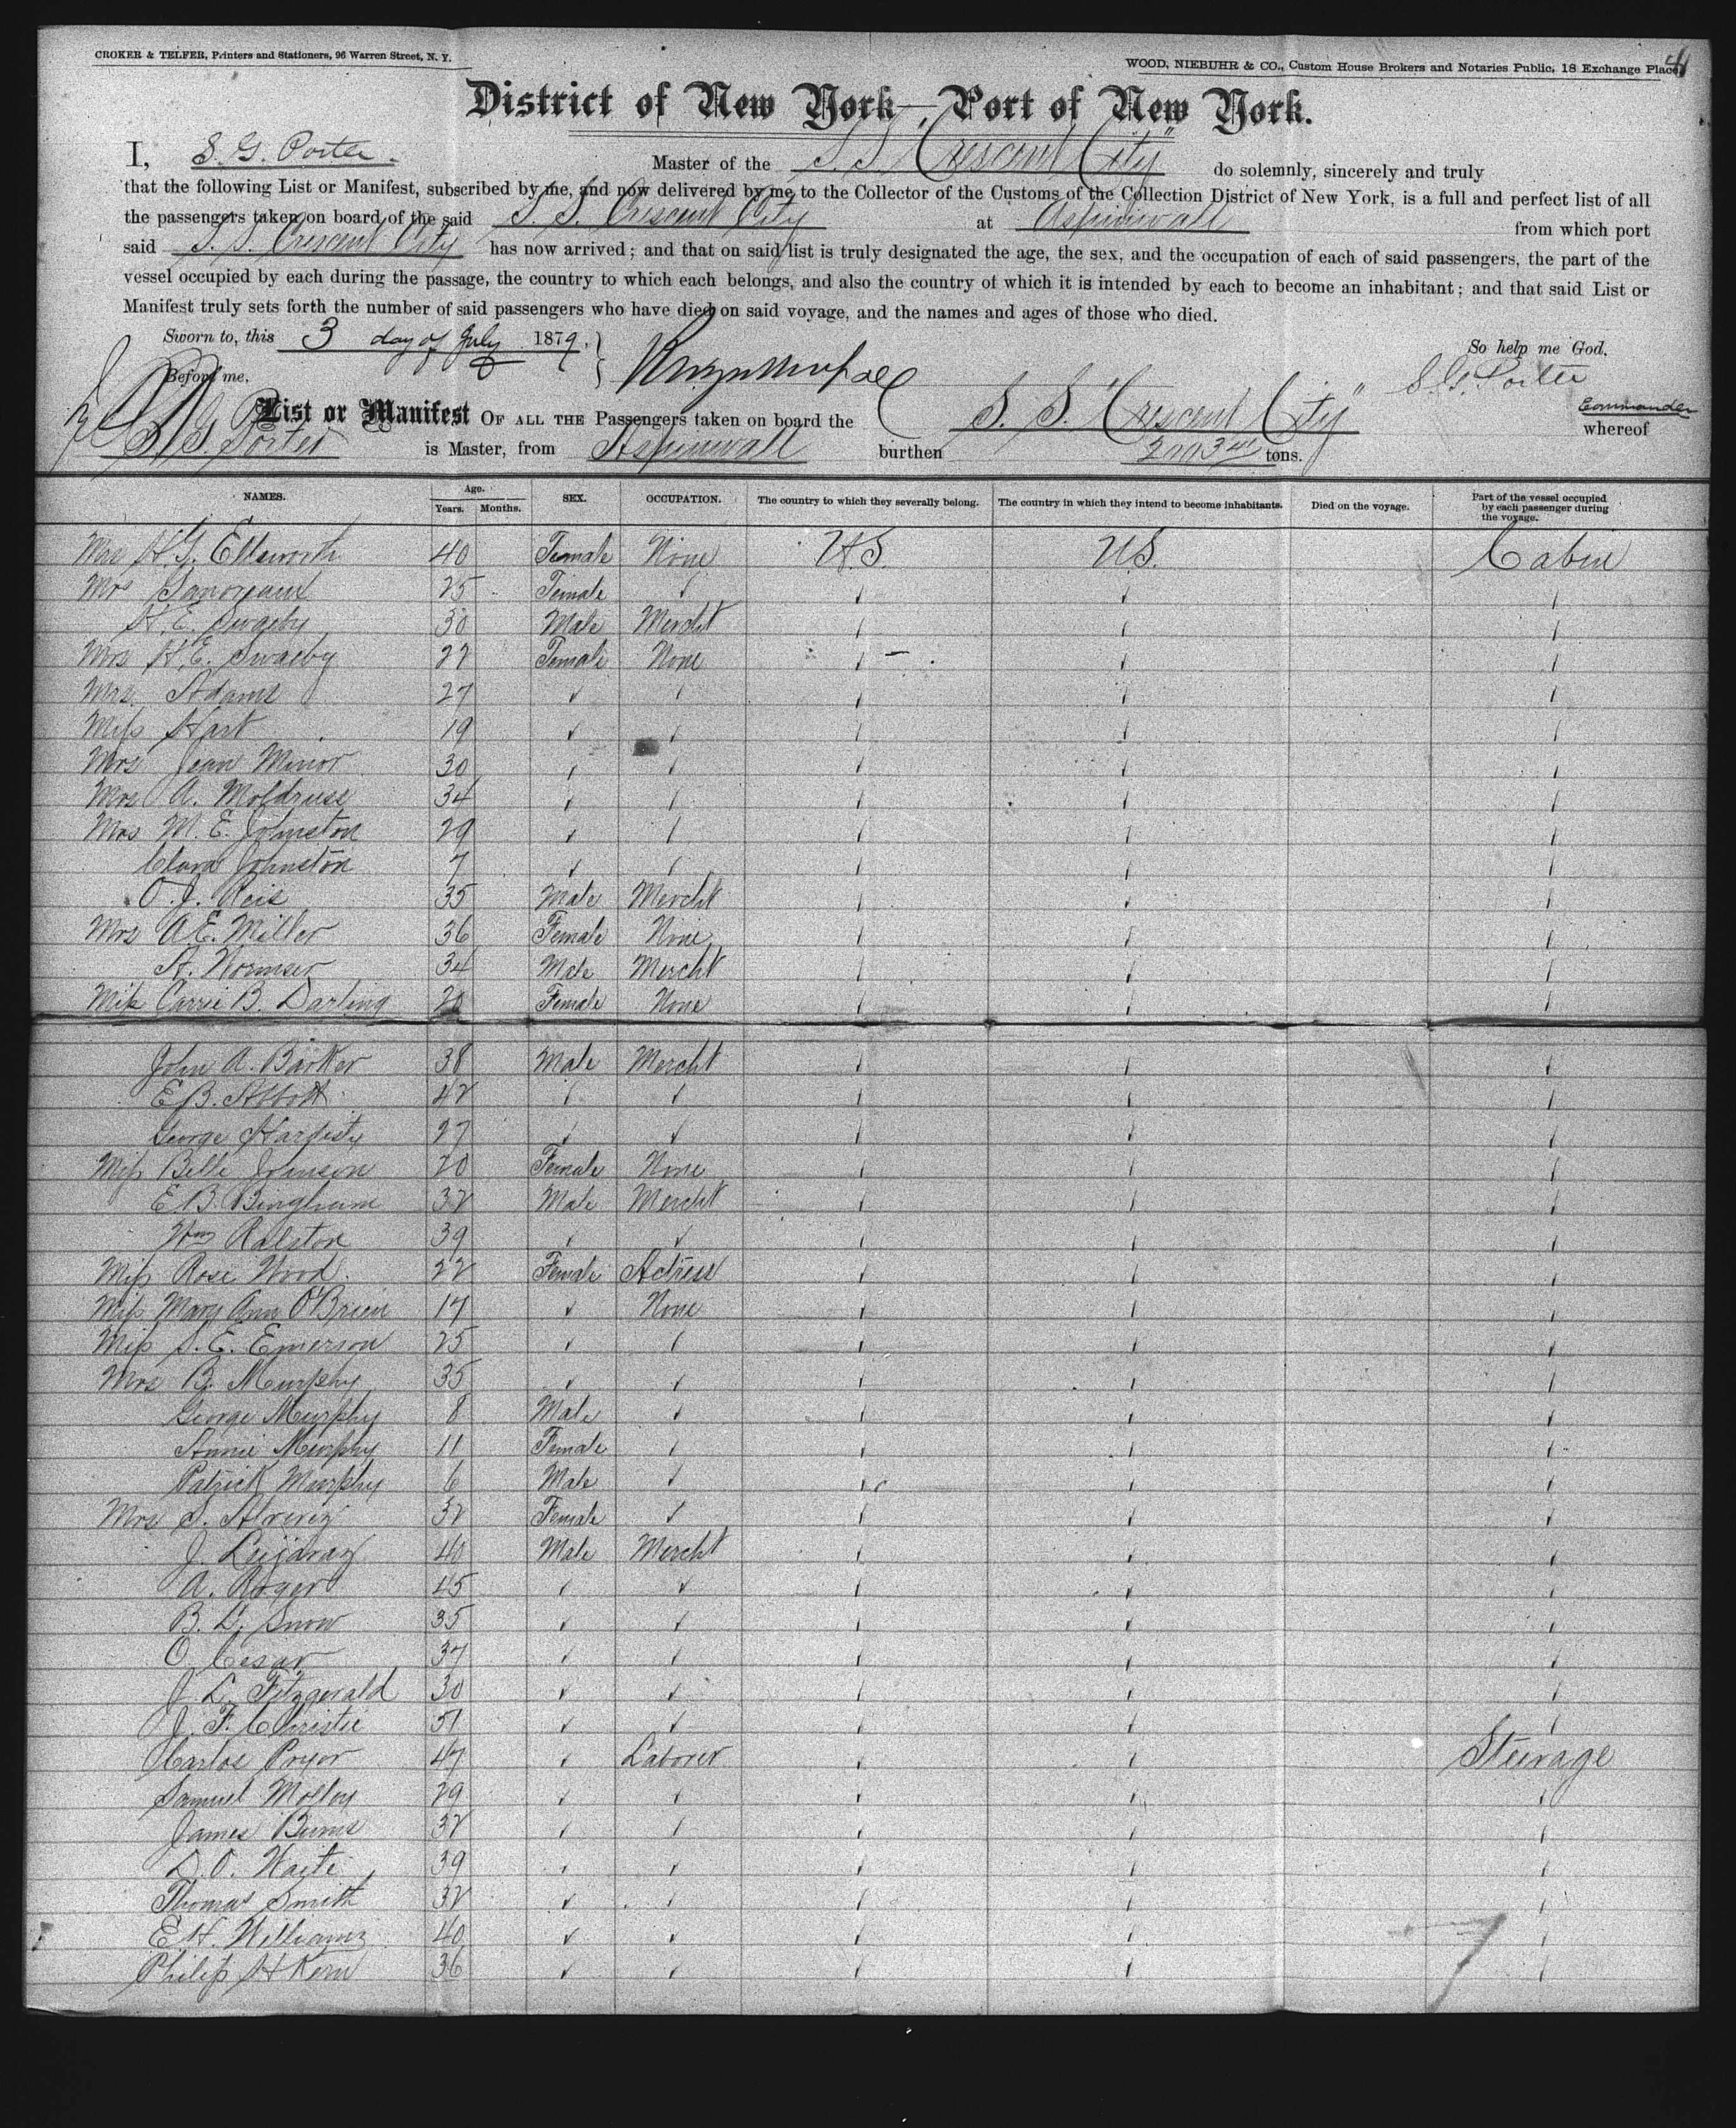 CROKER & TELFER, Printers and Stationers, 96 Warren Street, N. Y.
WOOD, NIEBUHR & CO., Custom House Brokers and Notaries Public, 18 Exchange Place
4
District of New York, Port of New York.
I, S. G. Porter. Master of the S. S. Crescent City" do solemnly, sincerely and truly
that the following List or Manifest, subscribed by me, and now delivered by me to the Collector of the Customs of the Collection District of New York, is a full and perfect list of all
the passengers taken on board of the said S. S. Crescent City at Aspinwall from which port
said S. S. Crescent City has now arrived; and that on said list is truly designated the age, the sex, and the occupation of each of said passengers, the part of the
vessel occupied by each during the passage, the country to which each belongs, and also the country of which it is intended by each to become an inhabitant; and that said List or
Manifest truly sets forth the number of said passengers who have died on said voyage, and the names and ages of those who died.
Sworn to, this 3 day of July 1879.
So help me God.
Before me,
S. G. Porter
Commander
List or Manifest OF ALL THE Passengers taken on board the S. S. "Crescent City" whereof
S. G. Porter is Master, from Aspinwall burthen tons.
NAMES. Age. Years. Months. SEX. OCCUPATION. The country to which they severally belong. The country in which they intend to become inhabitants. Died on the voyage. Part of the vessel occupied by each passenger during the voyage.
Mrs H. G. Ellsworth 40 Female None U.S. U.S. Cabin
Mrs 25 Female
H. E. Swaeby 30 Male Mercht
Mrs H. E. Swaeby 22 Female None
Mrs. Adams 27
Miss Hart 19
Mrs Jean Minor 30
Mrs A. 34
Mrs M. E. Johnston 29
Clara Johnston 7
O. J. Reis 35 Male Mercht
Mrs A. E. Miller 36 Female None
A. Wormser 34 Male Mercht
Miss Carrie B. Darling Female None
John A. Barker 38 Male Mercht
E. B. Abbott 42
George Harpisty 27
Miss Belle Johnson 20 Female None
E. B. Bingham 32 Male Mercht
Wm Ralston 39
Miss Rose Wood 22 Female Actress
Miss Mary Ann O'Brien 17 None
Miss S. E. Emerson 25
Mrs B. Murphy 35
George Murphy 8 Male
Annie Murphy 11 Female
Patrick Murphy 6 Male
Mrs S. Alverez 32 Female
J. 40 Male Mercht
A. Roger 45
B. L. Snow 35
O. Cesar 37
J. L. Fitzgerald 30
J. F. Christie 51
Carlos Pryor 47 Laborer Steerage
Samuel Molloy 29
James Burns 32
D. O. Waite 39
Thomas Smith 32
E. H. Williams 40
Philip H Kern 36